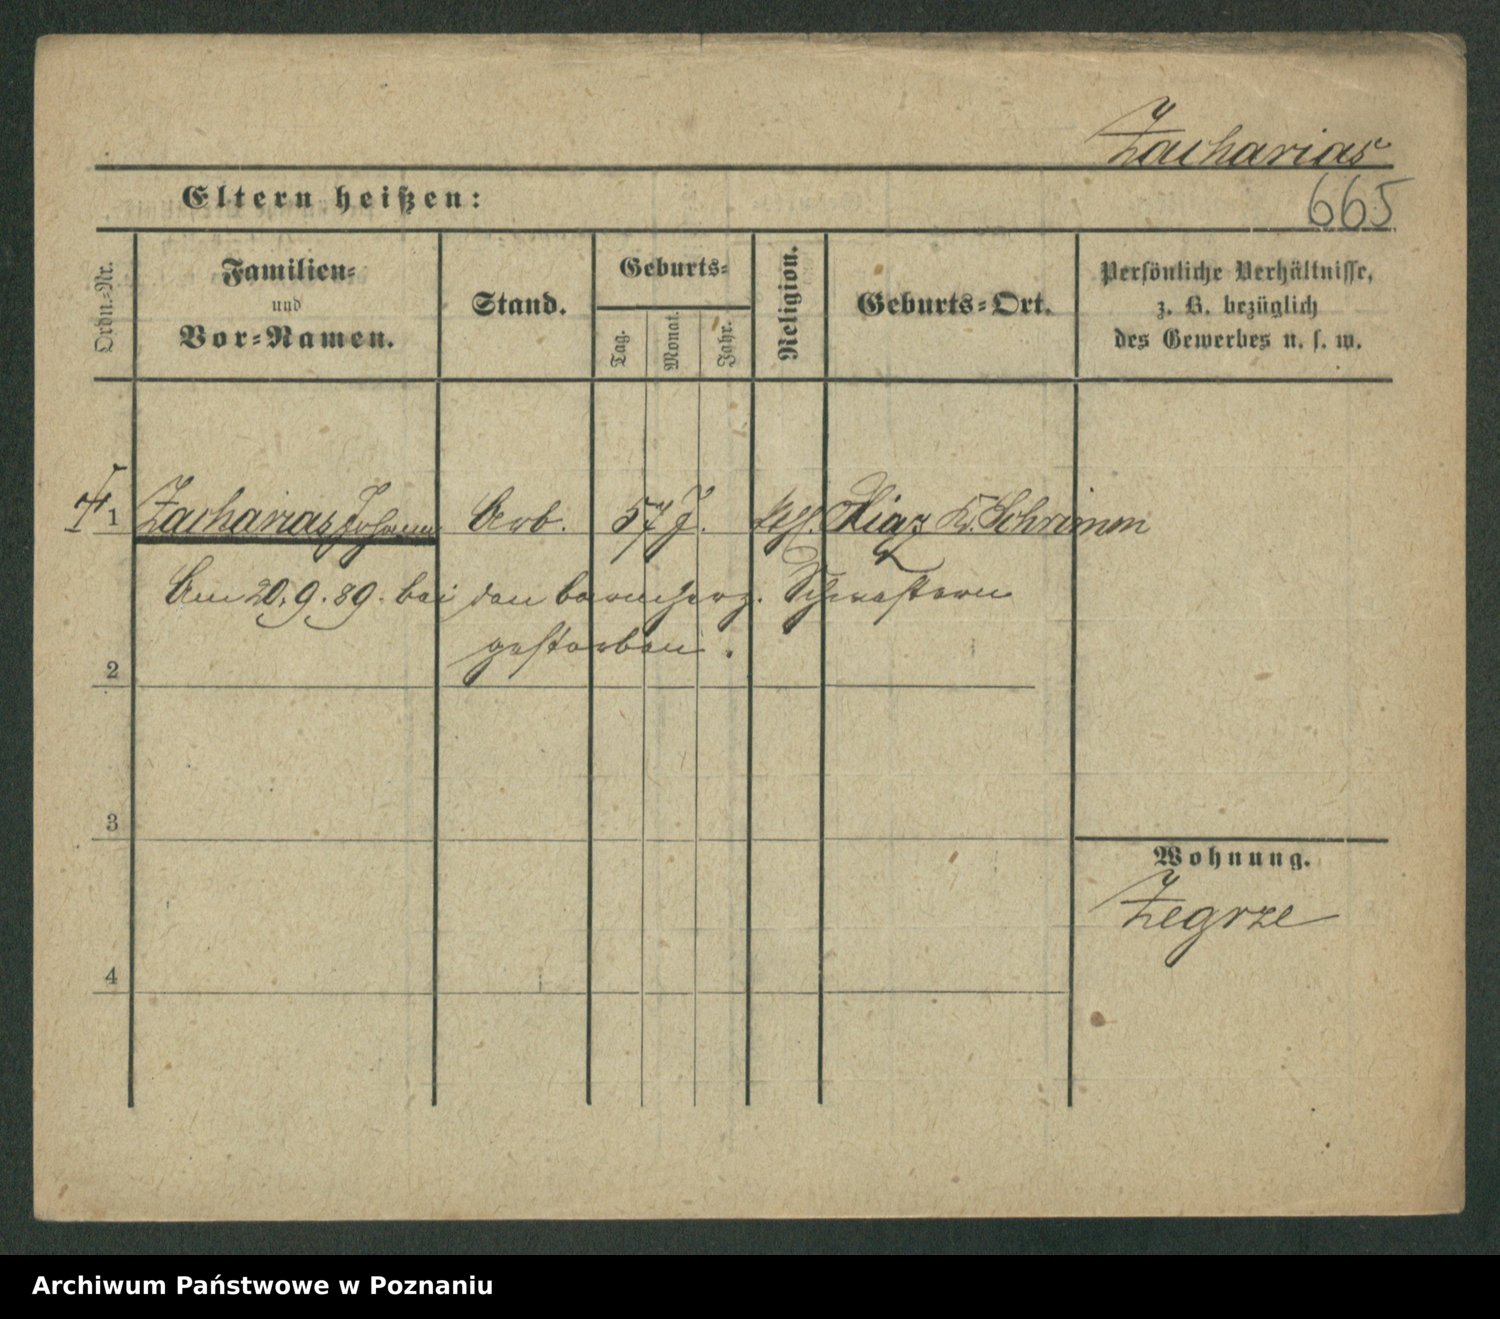 Zacharias
Eltern heißen:
665
Ordn.-Nr.
Familien-
und
Vor-Namen.
Stand.
Geburts-
Tag.
Monat.
Jahr.
Religion.
Geburts-Ort.
Persönliche Verhältnisse,
z. B. bezüglich
des Gewerbes u. s. w.
1 Zacharias Johann Arb. 57 J. Xiaz Kr. Schrimm
Am 20.9.89. bei den barmherz. Schwestern
gestorben.
2
3
Wohnung.
Zegrze
4
Archiwum Państwowe w Poznaniu